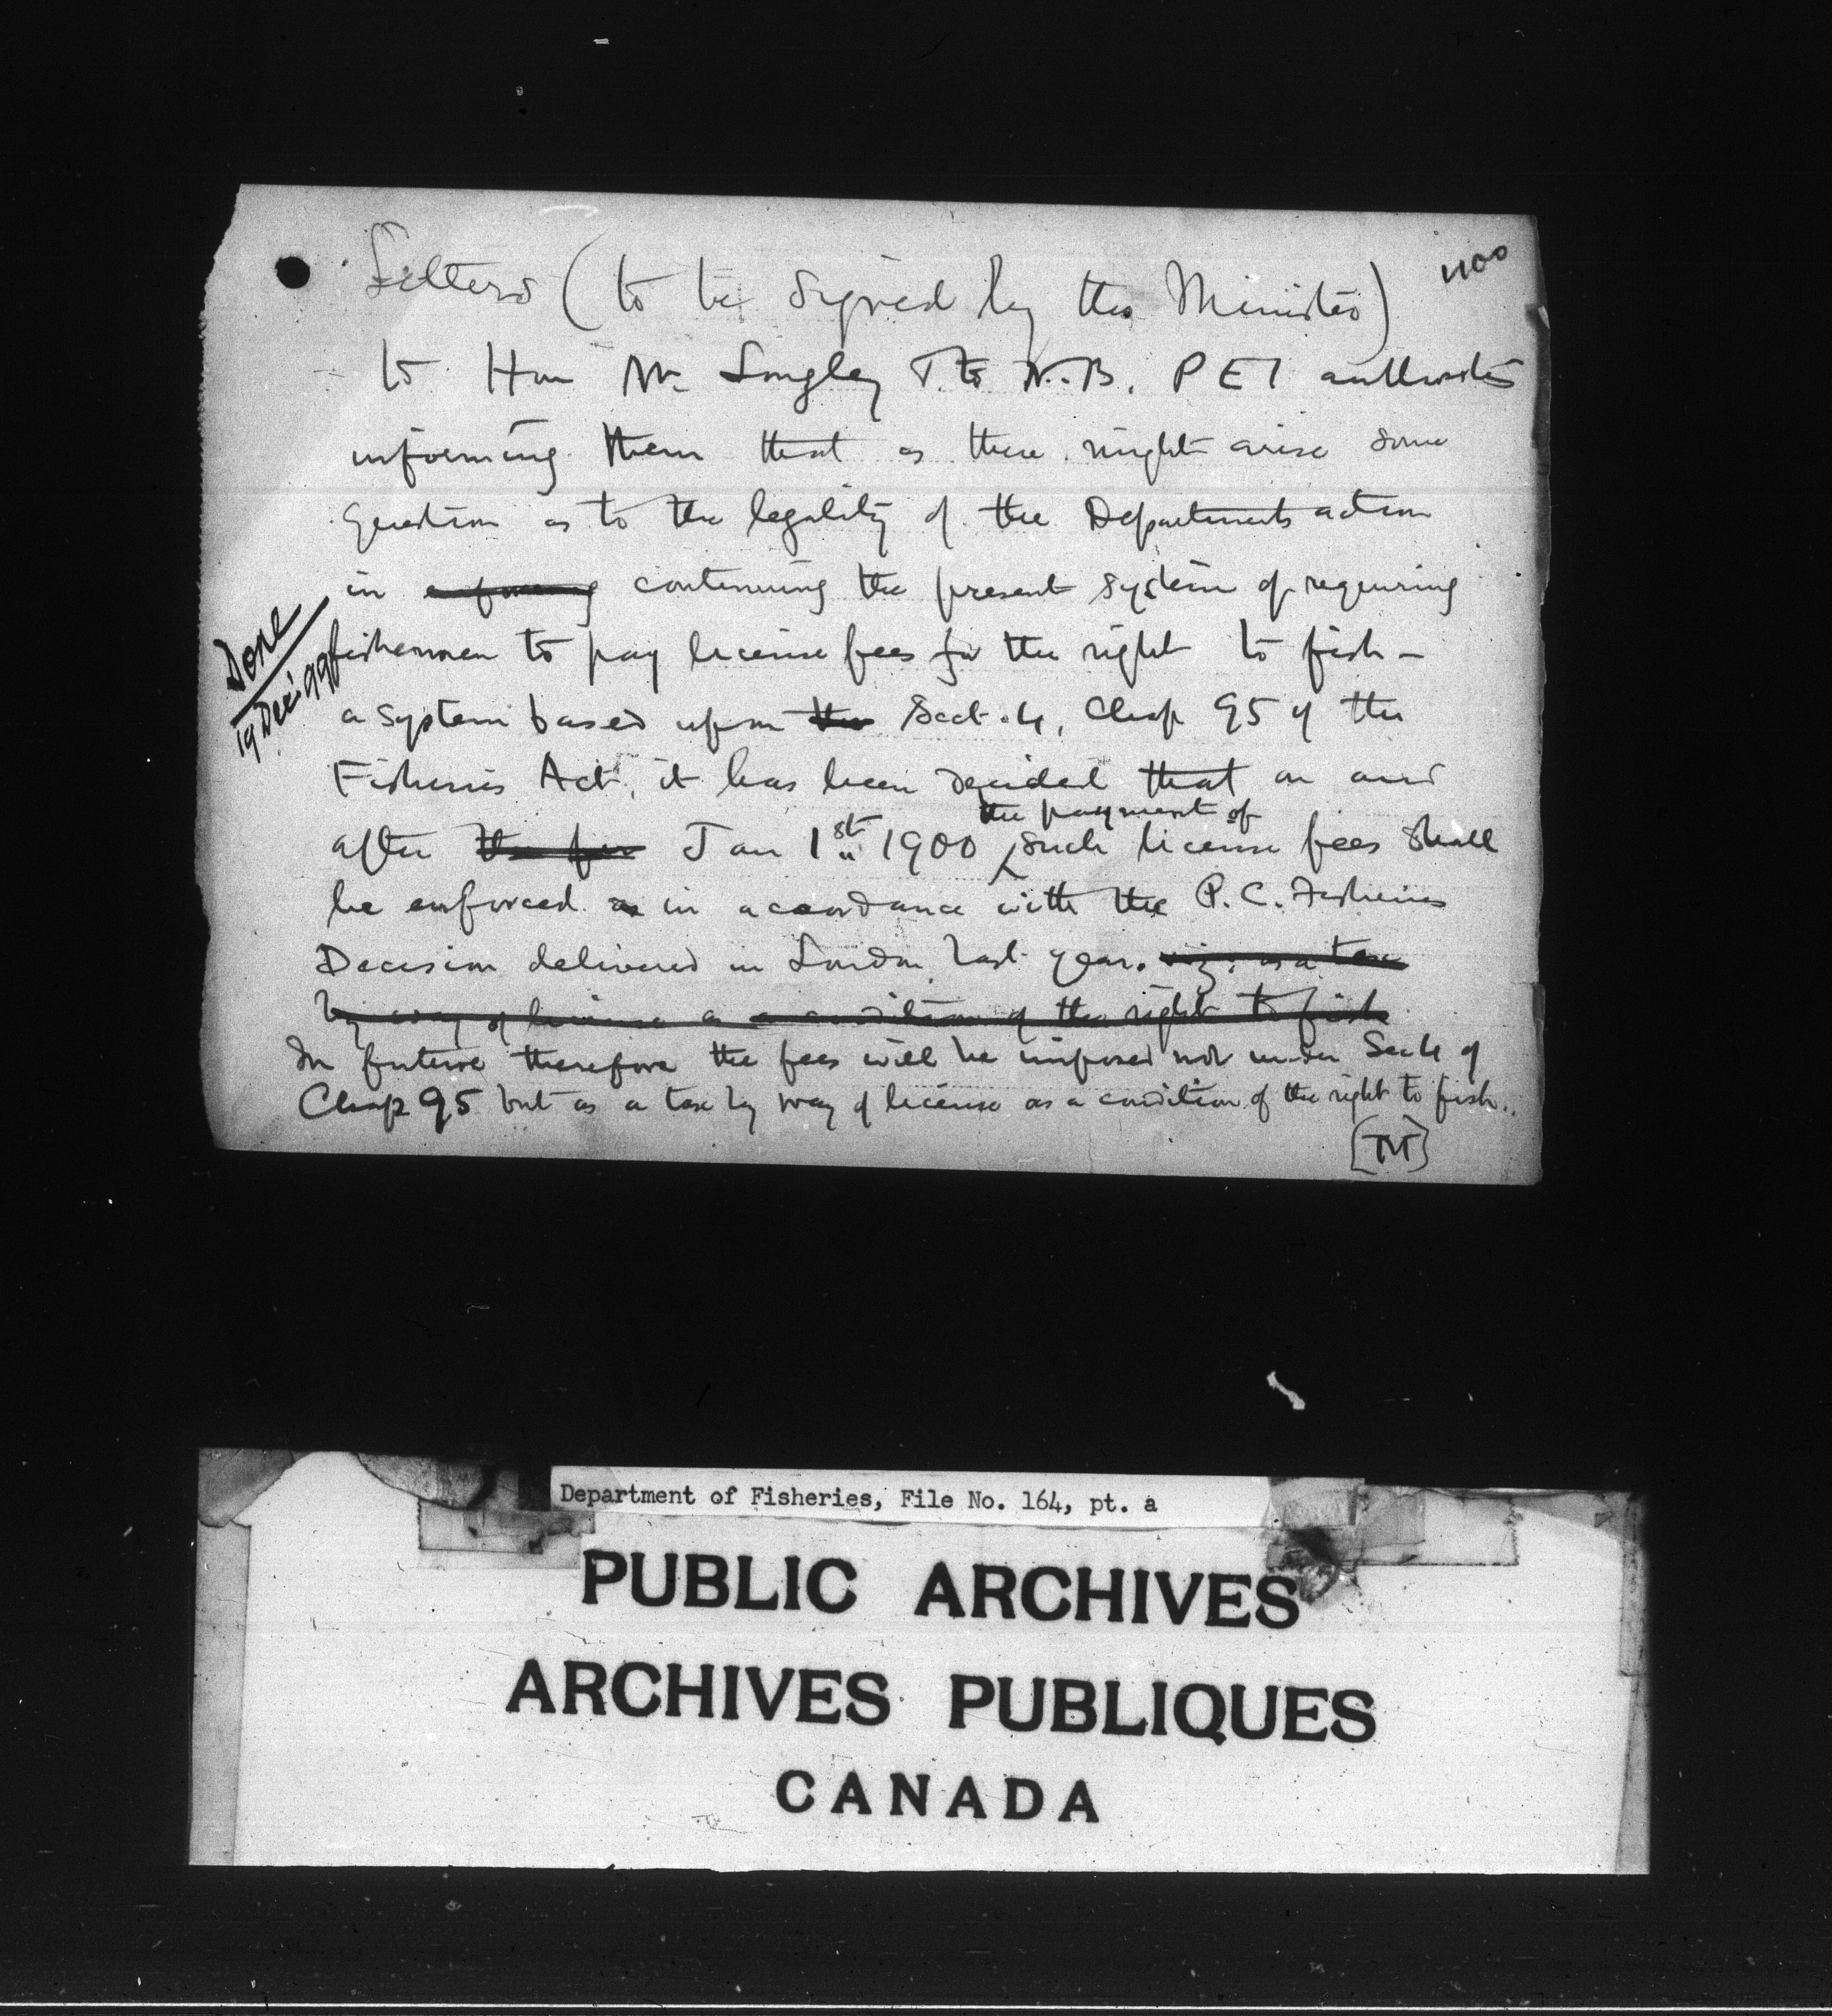 Letters (to be signed by the Minister)
1100
to Hon Mr Longley & to N.B. P E I authorities
informing them that as there might arise some
question as to the legality of the Departments action
in enforcing continuing the present system of requiring
fishermen to pay license fees for the right to fish –
a system based upon the Sect. 4, Chap 95 of the
Fisheries Act, it has been decided that on and
the payment of
after the fee Jan 1st 1900 such license fees shall
be enforced as in accordance with the P.C. Fisheries
Decision delivered in London last year. viz: as a tax
by way of license as a condition of the right to fish
In future therefore the fees will be imposed not under Sect 4 of
Chap 95 but as a tax by way of license as a condition of the right to fish..
Done
19 Dec '99
Department of Fisheries, File No. 164, pt. a
PUBLIC ARCHIVES
ARCHIVES PUBLIQUES
CANADA